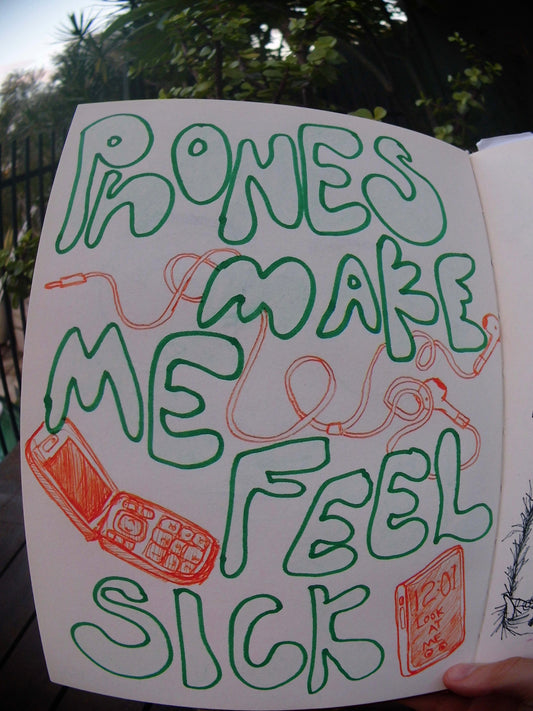 PhONES
MAKE
ME
FEEL
SICK
12:01
LOOK
AT
ME